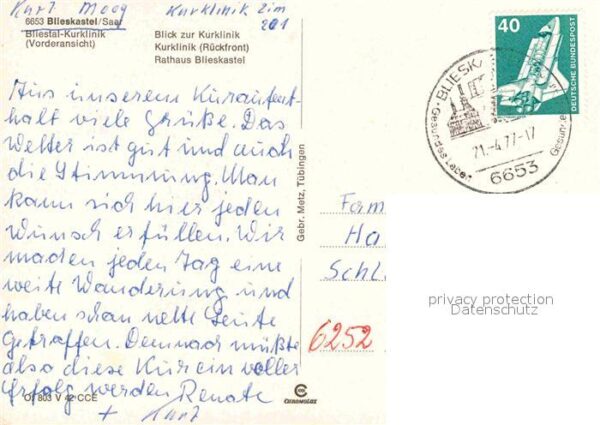 Kurt Moog Kurklinik Zim
201
6653 Blieskastel/Saar
Bliestal-Kurklinik
(Vorderansicht)
Blick zur Kurklinik
Kurklinik (Rückfront)
Rathaus Blieskastel
40
DEUTSCHE BUNDESPOST
BLIESKA
Gesundes Leben
21.-4.77-17
Gesund
6653
Aus unserem Kuraufent-
halt viele Grüße. Das
Wetter ist gut und auch
die Stimmung. Man
kann sich hier jeden
Wunsch erfüllen. Wir
machen jeden Tag eine
weite Wanderung und
haben schon nette Leute
getroffen. Demnach müßte
also diese Kur ein voller
Erfolg werden Renate
+ Kurt
Gebr. Metz, Tübingen
Fam
Ha
Schl
6252
privacy protection
Datenschutz
803 V 42 CCE
CEKUMCOLOR